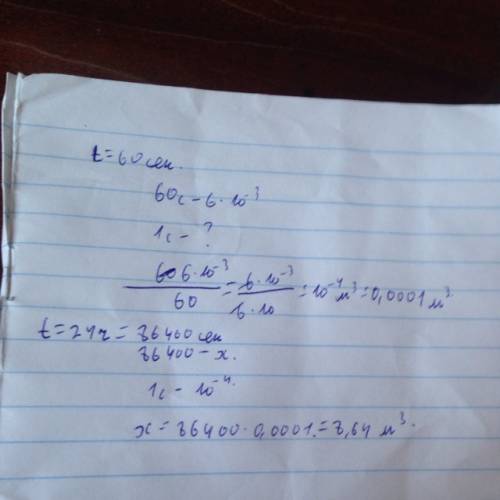 t = 60 сек.
60с - 6 · 10⁻³
1с - ?
6 · 10⁻³ / 60 = 6 · 10⁻³ / 6 · 10 = 10⁻⁴ м³ = 0,0001 м³.
t = 24ч = 86400 сек
86400 - x.
1с - 10⁻⁴.
x = 86400 · 0,0001. = 8,64 м³.